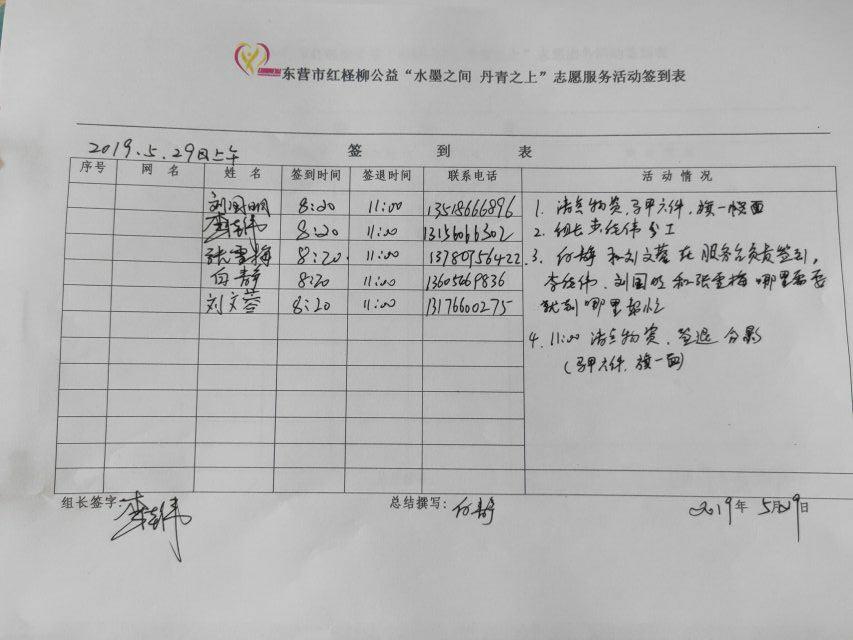 东营市红柽柳公益“水墨之间 丹青之上”志愿服务活动签到表
2019.5.29日上午
签 到 表
序号 网 名 姓 名 签到时间 签退时间 联系电话 活 动 情 况
刘国明 8:20 11:00 13518666896
李经伟 8:20 11:00 13156066302
张雪梅 8:20 11:00 13780756422
何静 8:20 11:00 13605669836
刘文蓉 8:20 11:00 13176600275
1. 清点物资,马甲六件,旗一面
2. 组长李经伟分工
3. 何静和刘文蓉在服务台负责签到,
李经伟、刘国明和张雪梅哪里需要
就到哪里帮忙
4. 11:00 清点物资、签退 合影
(马甲六件,旗一面)
组长签字: 李经伟 总结撰写: 何静 2019年 5月29日